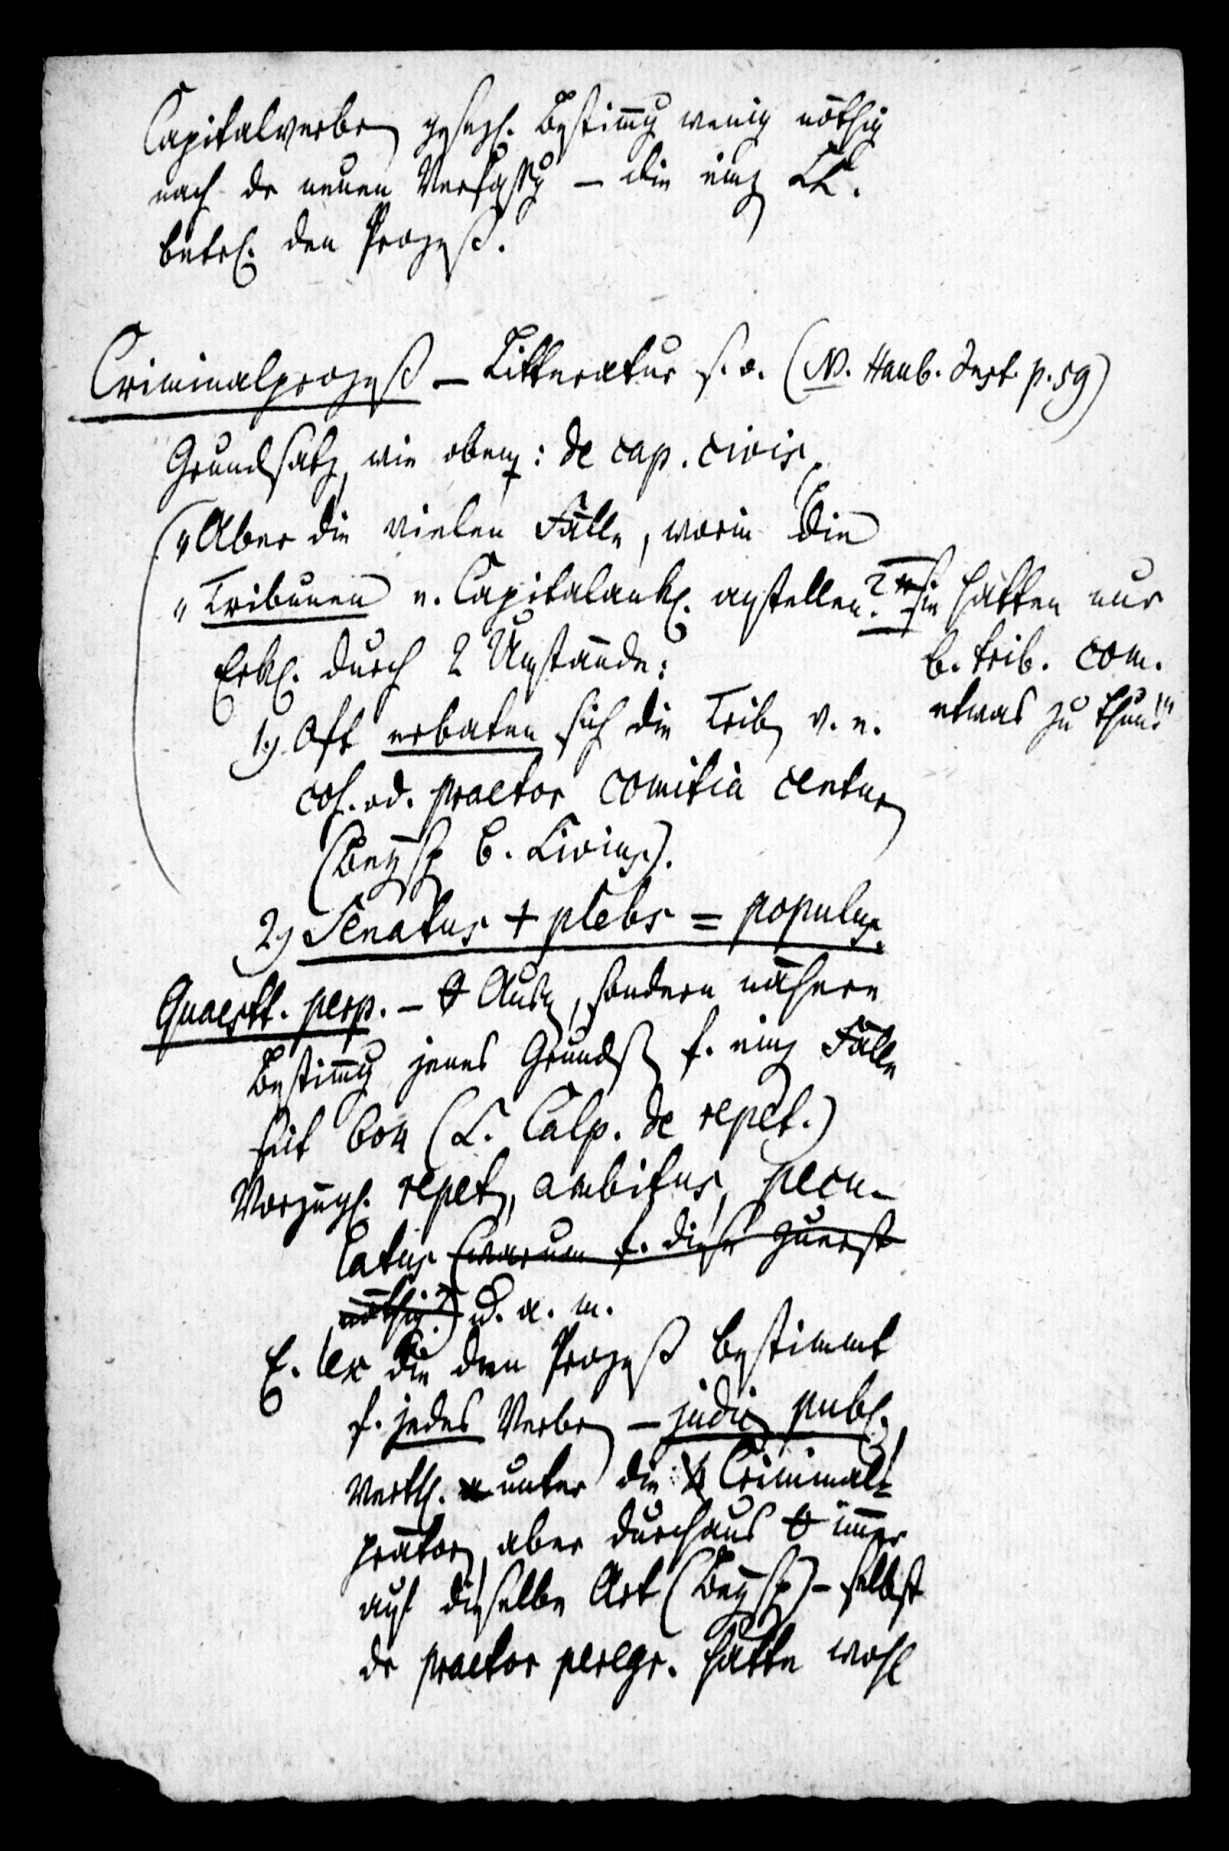 Capitalverbr gesezl. Bestimmg wenig nöthig
nach dr neuen Verfaßg – die einz LL.
betrf. den Prozeß.
Criminalprozeß – Litteratur s. o. (NB. Haub. Inst. p. 59)
Grundsatz, wie oben: de cap. civis
("Aber die vielen Fälle, worin die
"Tribunen e. Capitalankl. anstellen?
sie hatten nur
b. trib. com.
etwas zu thun!"
Erkl. durch 2 Umstände:
1) Oft erbaten sich die Trib v. e.
cos. od. praetor comitia centur
(Beysp b. Livius).
2) Senatus + plebs = populus.
Quaestt. perp. – Ausn, sondern nähere
Bestimmg jenes Grunds f. einz Fälle
seit 604 (L. Calp. de repet.)
Vorzügl. repet, ambitus, pecu-
latus (warum f. diese zuerst
nöthig?) u. a. m.
E. lex die den Prozeß bestimmt
f. jedes Verbr – judic publ.,
vertheilt unter die Criminal-
prätor, aber durchaus immer
auf dieselbe Art (Beysp) – selbst
dr praetor peregr. hatte wohl